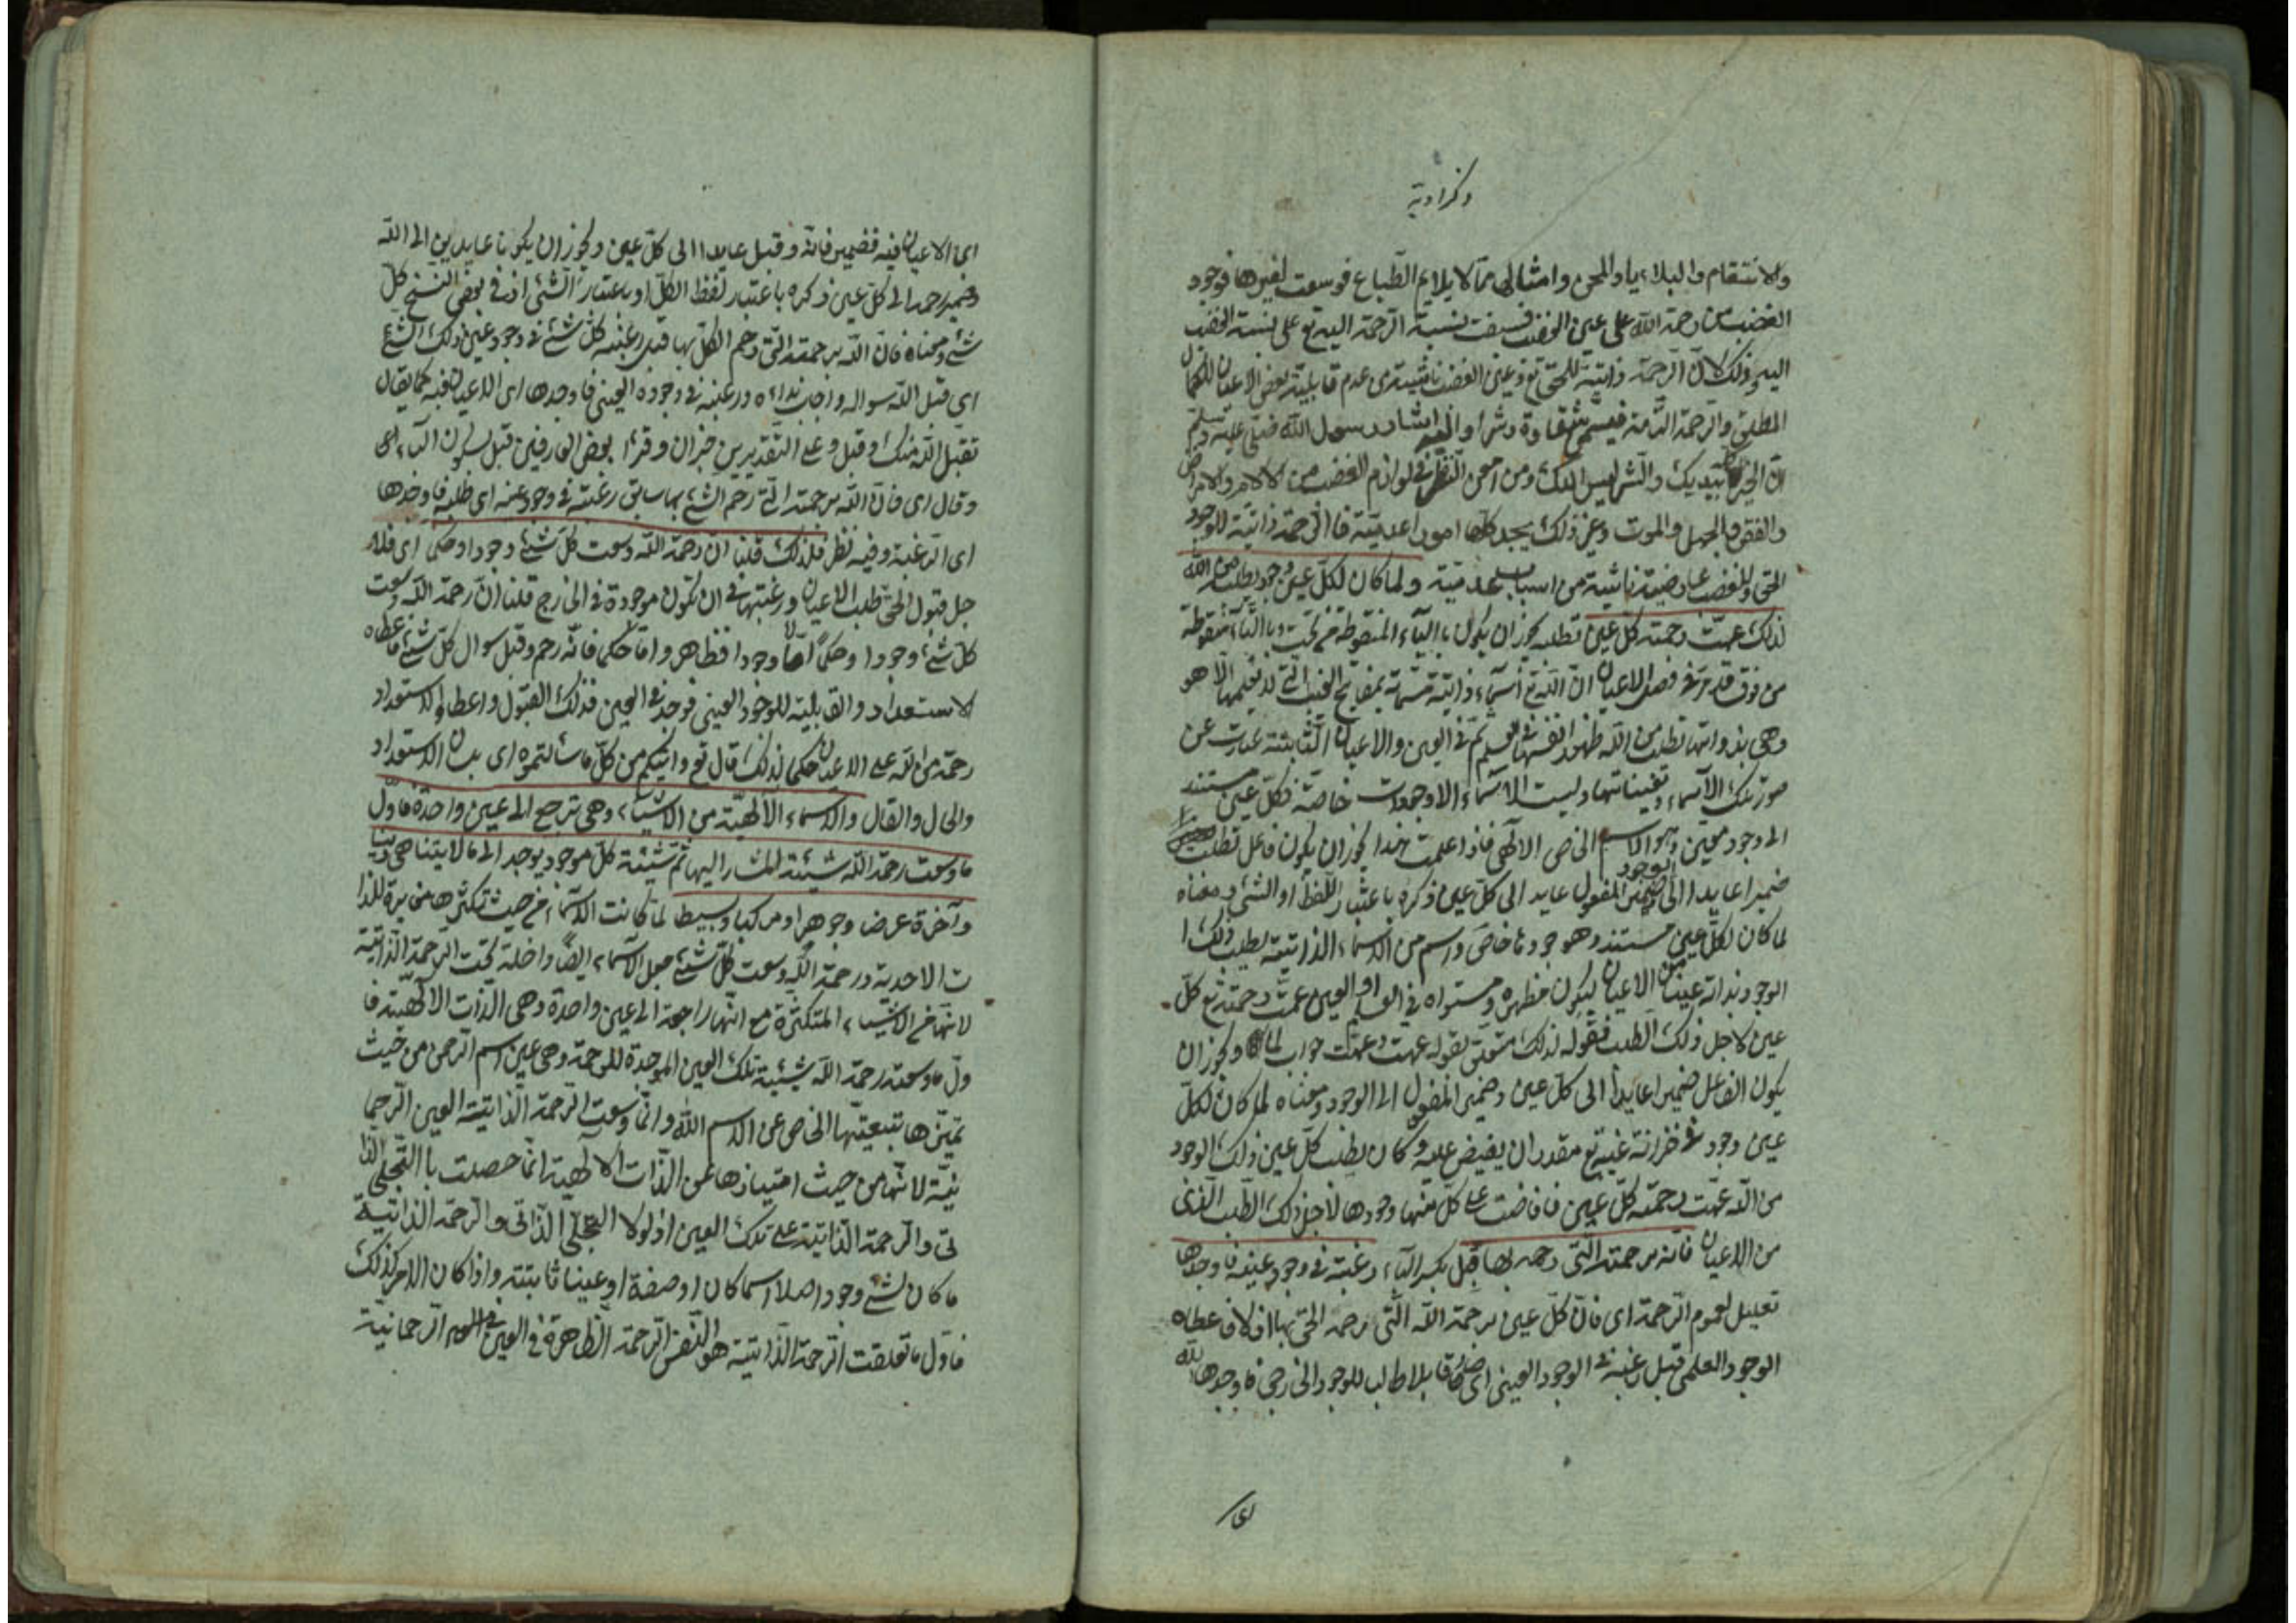 وكزاوية
والانتقام والبلايا والمحن وامثالها مما لا يلايم الطباع فوسعت لغيرها فوجود
الغضب من رحمة الله على عين الغضب فسبقت نسبة الرحمة اليه تع على نسبة الغضب
اليه وذلك لان الرحمة ذاتية للحق تع وعين الغضب ناشية من عدم قابلية بعض الاعيان للكمال
المطلق والرحمة التامة فيسمى شقاوة وشرا واليه اشار رسول الله صلى عليه وسلم
ان الخير كله بيديك والشر ليس اليك ومن امعن النظر في لوازم الغضب من الالام والامراض
والفقر والجهل والموت وغير ذلك يجد كلها امورا عدمية فالرحمة ذاتية للوجود
الحق والغضب عارضية ناشية من اسباب عدمية ولما كان لكل عين وجود يطلبه من الله
لذلك عمت رحمته كل عين تطلبه يجوز ان يكون باالياء المنقوطة من تحت وباالتاء منقوطة
من فوق قد مر في فصل الاعيان ان لله تع اسماء ذاتية مسماة بمفاتح الغيب التي لا يعلمها الا هو
وهي بذواتها تطلب من الله ظهور انفسها في العلم ثم في العين والاعيان الثابتة عبارت عن
صور تلك الاسماء وتعيناتها وليست الاسماء الا وجودات خاصة فكل عين مستند
الى وجود معين وهو الاسم الخاص الالهي فاذا علمت هذا يجوز ان يكون فاعل تطلب
ضميرا عايدا الى الوجود وضمير المفعول عايد الى كل عين ذكره باعتبار اللفظ او الشئ ومعناه
لما كان لكل عين مستند وهو جود ما خاص واسم من الاسماء الذاتية يطلب ذلك ا
لوجود بذاته عينا من الاعيان ليكون مظهره ومستواه في العلم والعين عمت رحمته تع كل
عين لاجل ذلك الطلب فقوله لذلك متعلق بقوله عمت وعمت جواب لما ويجوز ان
يكون الفاعل ضميرا عايدا الى كل عين وضمير المفعول الى الوجود ومعناه لما كان لكل
عين وجود في خزانة غيبه تع مقدر ان يفيض عليه وكان يطلب كل عين ذلك الوجود
من الله عمت رحمته كل عين فافاضت على كل منها وجودها لاجل ذلك الطلب الذي
من الاعيان فانه برحمته التي رحمه بها قبل بكسر الباء رغبته في وجود عينه فاوجدها
تعليل لعموم الرحمة اى فان كل عين برحمة الله التي رحمه الحق بها اولا فاعطاه
الوجود العلمي قبل رغبته في الوجود العيني اى صار قابلا طالبا للوجود الخارجي فاوجدها الله
اى الاعيان فيه فضمير فانه وقبل عايدا الى كل عين ويجوز ان يكونا عايدين الى الله
وضمير رحمه الى كل عين ذكره باعتبار لفظ الكل او باعتبار الشئ اذ في بعض النسخ كل
شئ ومعناه فان الله برحمته التي رحم الكل بها قبل رغبته كل شئ في وجود عين ذلك الشئ
اى قبل الله سواله واجاب نداءه ورغبته في وجوده العيني فاوجدها اى الاعيان فيه كما يقال
تقبل الله منك وقبل وعلى التقديرين خبر ان وقرأ بعض العارفين قبل بسكون الباء اى
وقال اى فان الله برحمته التي رحم الشئ بها سابق رغبته في وجود عينه اى طلبه فاوجدها
اى الرغبة وفيه نظر فلذلك قلنا ان رحمة الله وسعت كل شئ وجودا وحكما اى فلا
جل قبول الحق طلب الاعيان ورغبتها في ان تكون موجودة في الخارج قلنا ان رحمة الله وسعت
كل شئ وجودا وحكما اما وجودا فظاهر واما حكما فانه رحم وقبل سوال كل شئ فاعطاه
الاستعداد والقابلية للوجود العيني فوجد في العين فذلك القبول واعطاء الاستعداد
رحمة من الله على الاعيان حكما لذلك قال تع واتيكم من كل ما سالتموه اى بلسان الاستعداد
والحال والقال والاسماء الالهية من الاشياء وهي ترجع الى عين واحدة فاول
ما وسعت رحمة الله شيئية المشار اليها ثم شيئية كل موجود يوجد الى ما لا يتناهى دنيا
وآخرة عرضا وجوهرا ومركبا وبسيطا لما كانت الاسماء من حيث تكثرها مغايرة للذا
ت الاحدية ورحمة الله وسعت كل شئ جعل الاسماء ايضا داخلة تحت الرحمة الذاتية
لانها من الاشياء المتكثرة مع انها راجعة الى عين واحدة وهي الذات الالهية فا
ول ما وسعته رحمة الله شيئية تلك العين الموجدة للرحمة وهي عين اسم الرحمن من حيث
تميزها بتبعيتها الخاص عن الاسم الله وانما وسعت الرحمة الذاتية العين الرحما
نية لانها من حيث امتيازها عن الذات الالهية انما حصلت باالتجلى الذا
تى والرحمة الذاتية على تلك العين اذ لولا التجلي الذاتي والرحمة الذاتية
ما كان لشئ وجود اصلا اسما كان او صفة او عينا ثابتة واذا كان الامر كذلك
فاول ما تعلقت الرحمة الذاتية هو النفس الرحمة الظاهرة في العين الرحمانية
اى